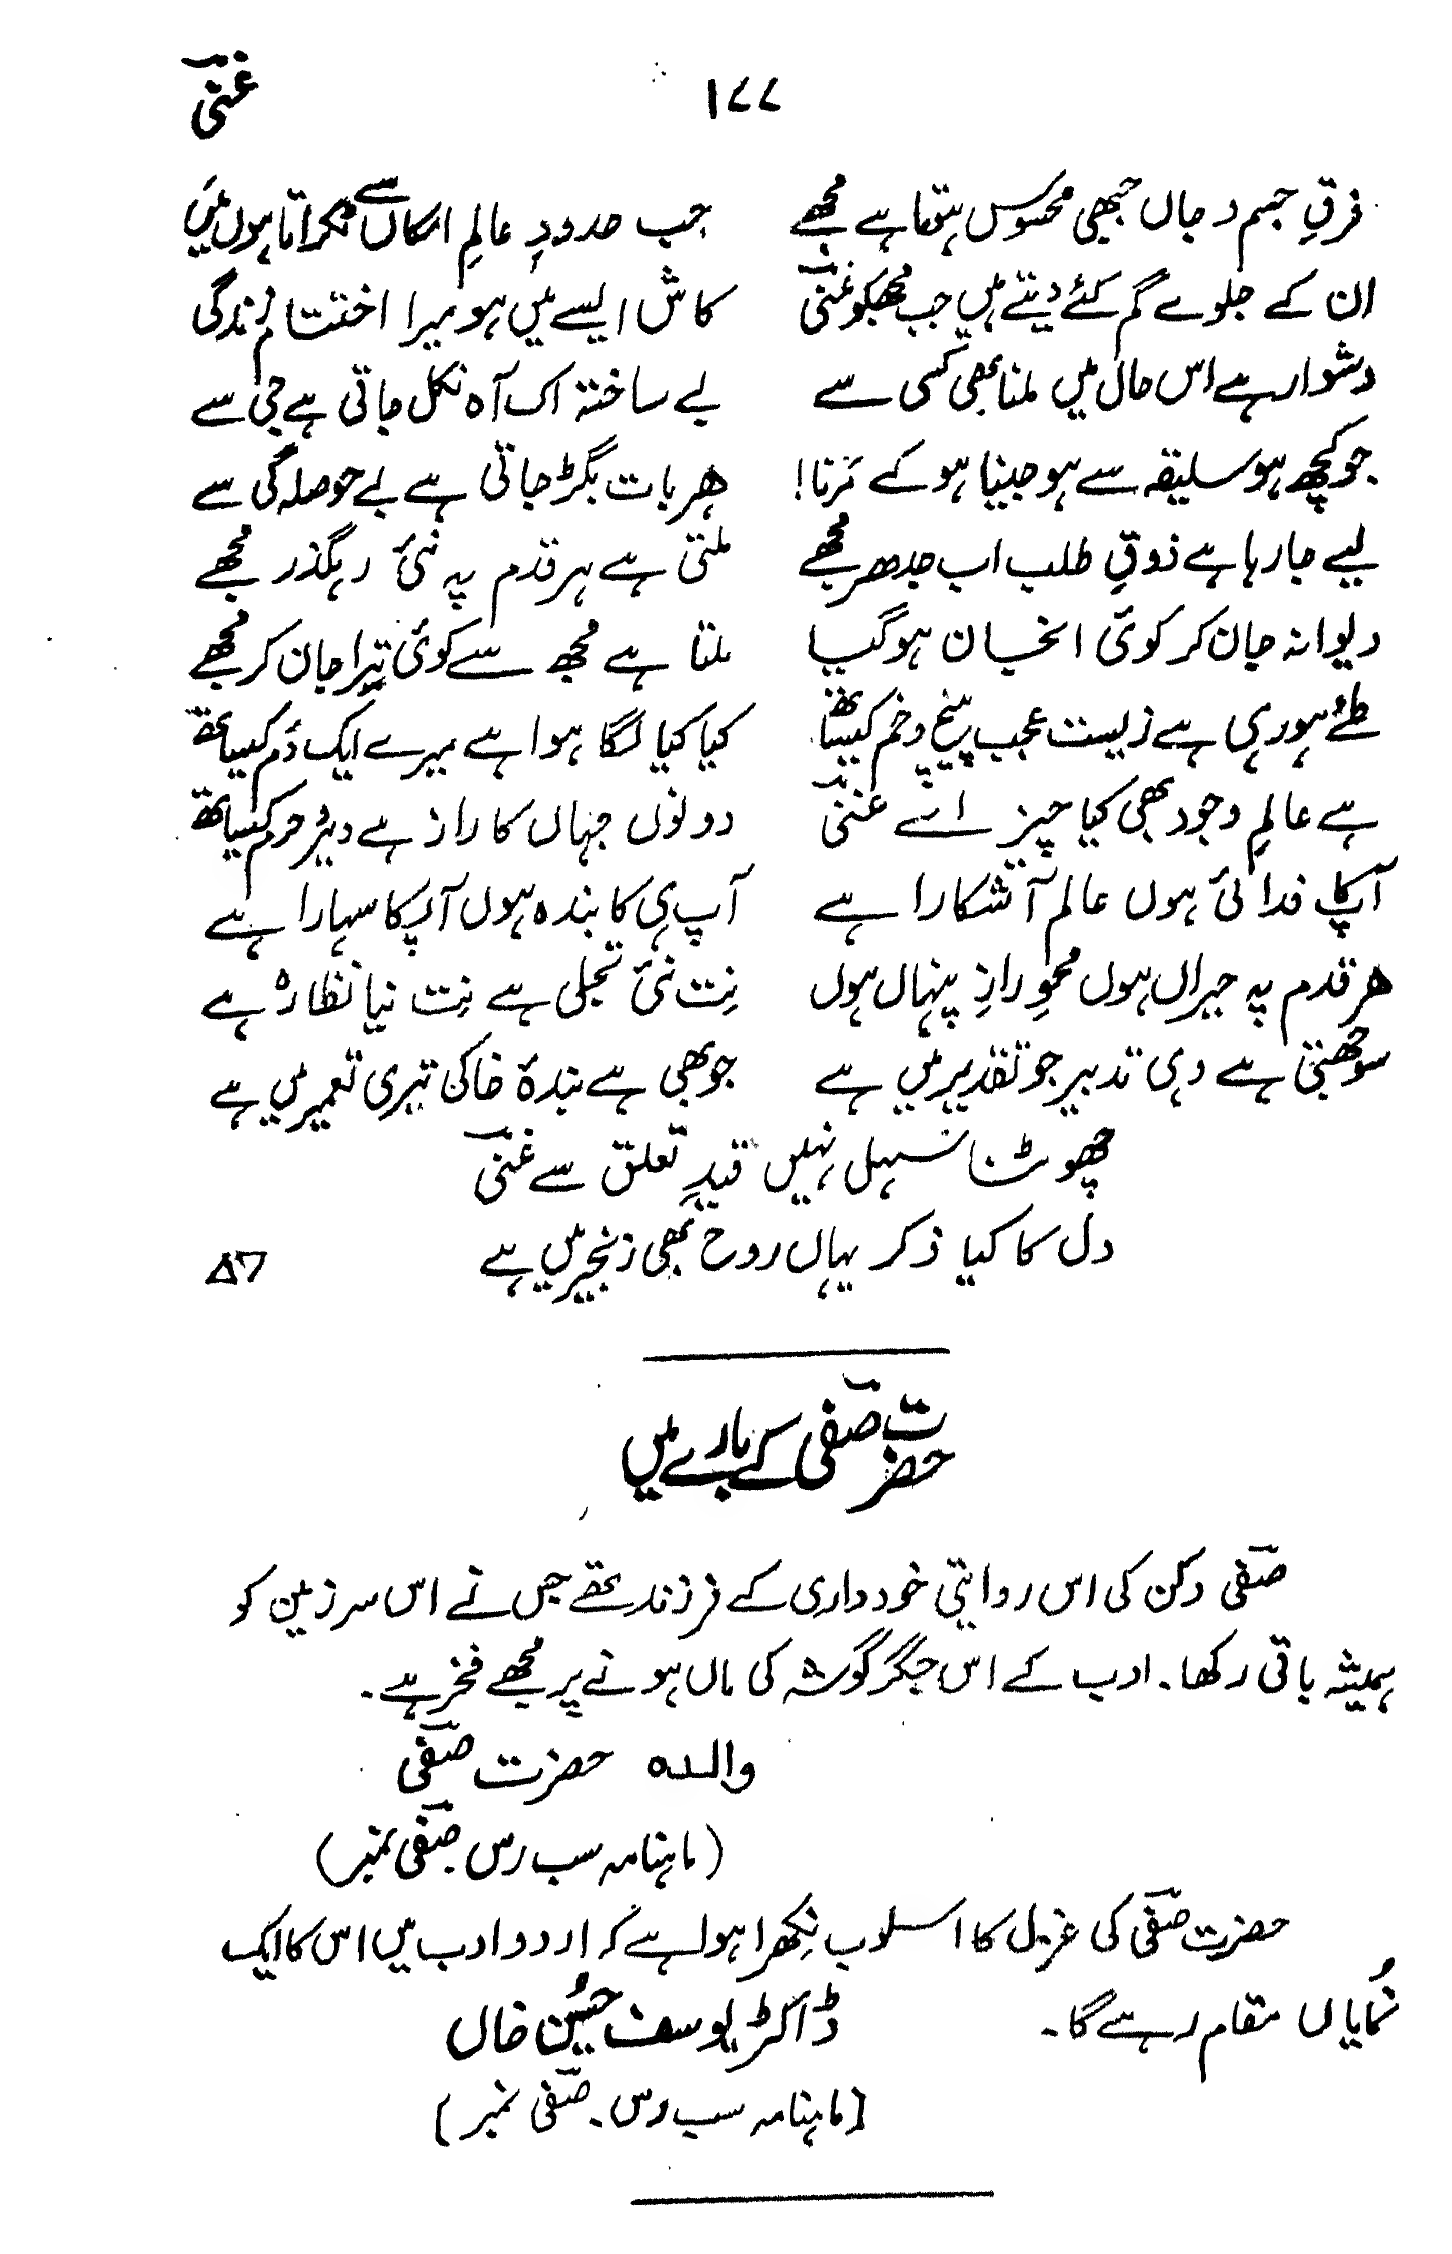 ۱۷۷ غنیؔ
فرقِ جسم و جاں جبھی محسوس ہوتا ہے مجھے جب حدودِ عالمِ امکاں سے ٹکراتا ہوں میں
ان کے جلوے گم کئے دیتے ہیں جب مجھکو غنیؔ کاش ایسے میں ہو میرا اختتامِ زندگی
دشوار ہے اس حال میں ملنا بھی کسی سے بے ساختہ اک آہ نکل جاتی ہے جی سے
جو کچھ ہو سلیقہ سے ہو جینا ہو کے مَرنا! ہر بات بگڑ جاتی ہے بے حوصلہ گی سے
لیے جا رہا ہے ذوقِ طلب اب جدھر مجھے ملتی ہے ہر قدم پہ نئی رہگذر مجھے
دیوانہ جان کر کوئی انجان ہو گیا ملتا ہے مجھ سے کوئی تیرا جان کر مجھے
طئے ہو رہی ہے زیست عجب پیچ و خم کیساتھ کیا کیا لگا ہوا ہے میرے ایک دَم کیساتھ
ہے عالمِ وجود بھی کیا چیز اے غنیؔ دونوں جہاں کا راز ہے دیر و حرم کیساتھ
آپ کا فدائی ہوں عالم آشکارا ہے آپ ہی کا بندہ ہوں آپ کا سہارا ہے
ہر قدم پہ حیراں ہوں محوِ رازِ پنہاں ہوں نِت نئی تجلی ہے نِت نیا نظارہ ہے
سوجھتی ہے وہی تدبیر جو تقدیر میں ہے جو بھی ہے بندۂ خاکی تیری تعمیر میں ہے
چھوٹنا سہل نہیں قیدِ تعلق سے غنیؔ
دل کا کیا ذکر یہاں روح بھی زنجیر میں ہے
حضرت صفیؔ کے بارے میں
صفیؔ دکن کی اس روایتی خودداری کے فرزند تھے جس نے اس سرزمین کو
ہمیشہ باقی رکھا۔ ادب کے اس جگر گوشہ کی ماں ہونے پر مجھے فخر ہے۔
والدہ حضرت صفیؔ
(ماہنامہ سب رس صفیؔ نمبر)
حضرت صفیؔ کی غزل کا اسلوب نِکھرا ہوا ہے کہ اردو ادب میں اس کا ایک
نُمایاں مقام رہے گا۔ ڈاکٹر یوسف حسُین خاں
[ماہنامہ سب رس۔ صفیؔ نمبر]